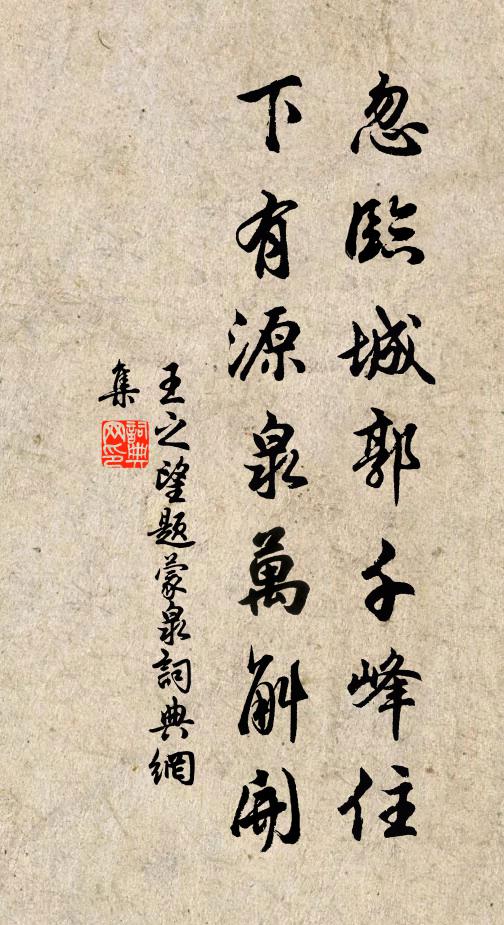 忽臨城郭千峰住
下有源泉萬斛開
王之望題蒙泉詞典網
集
詞典
网印